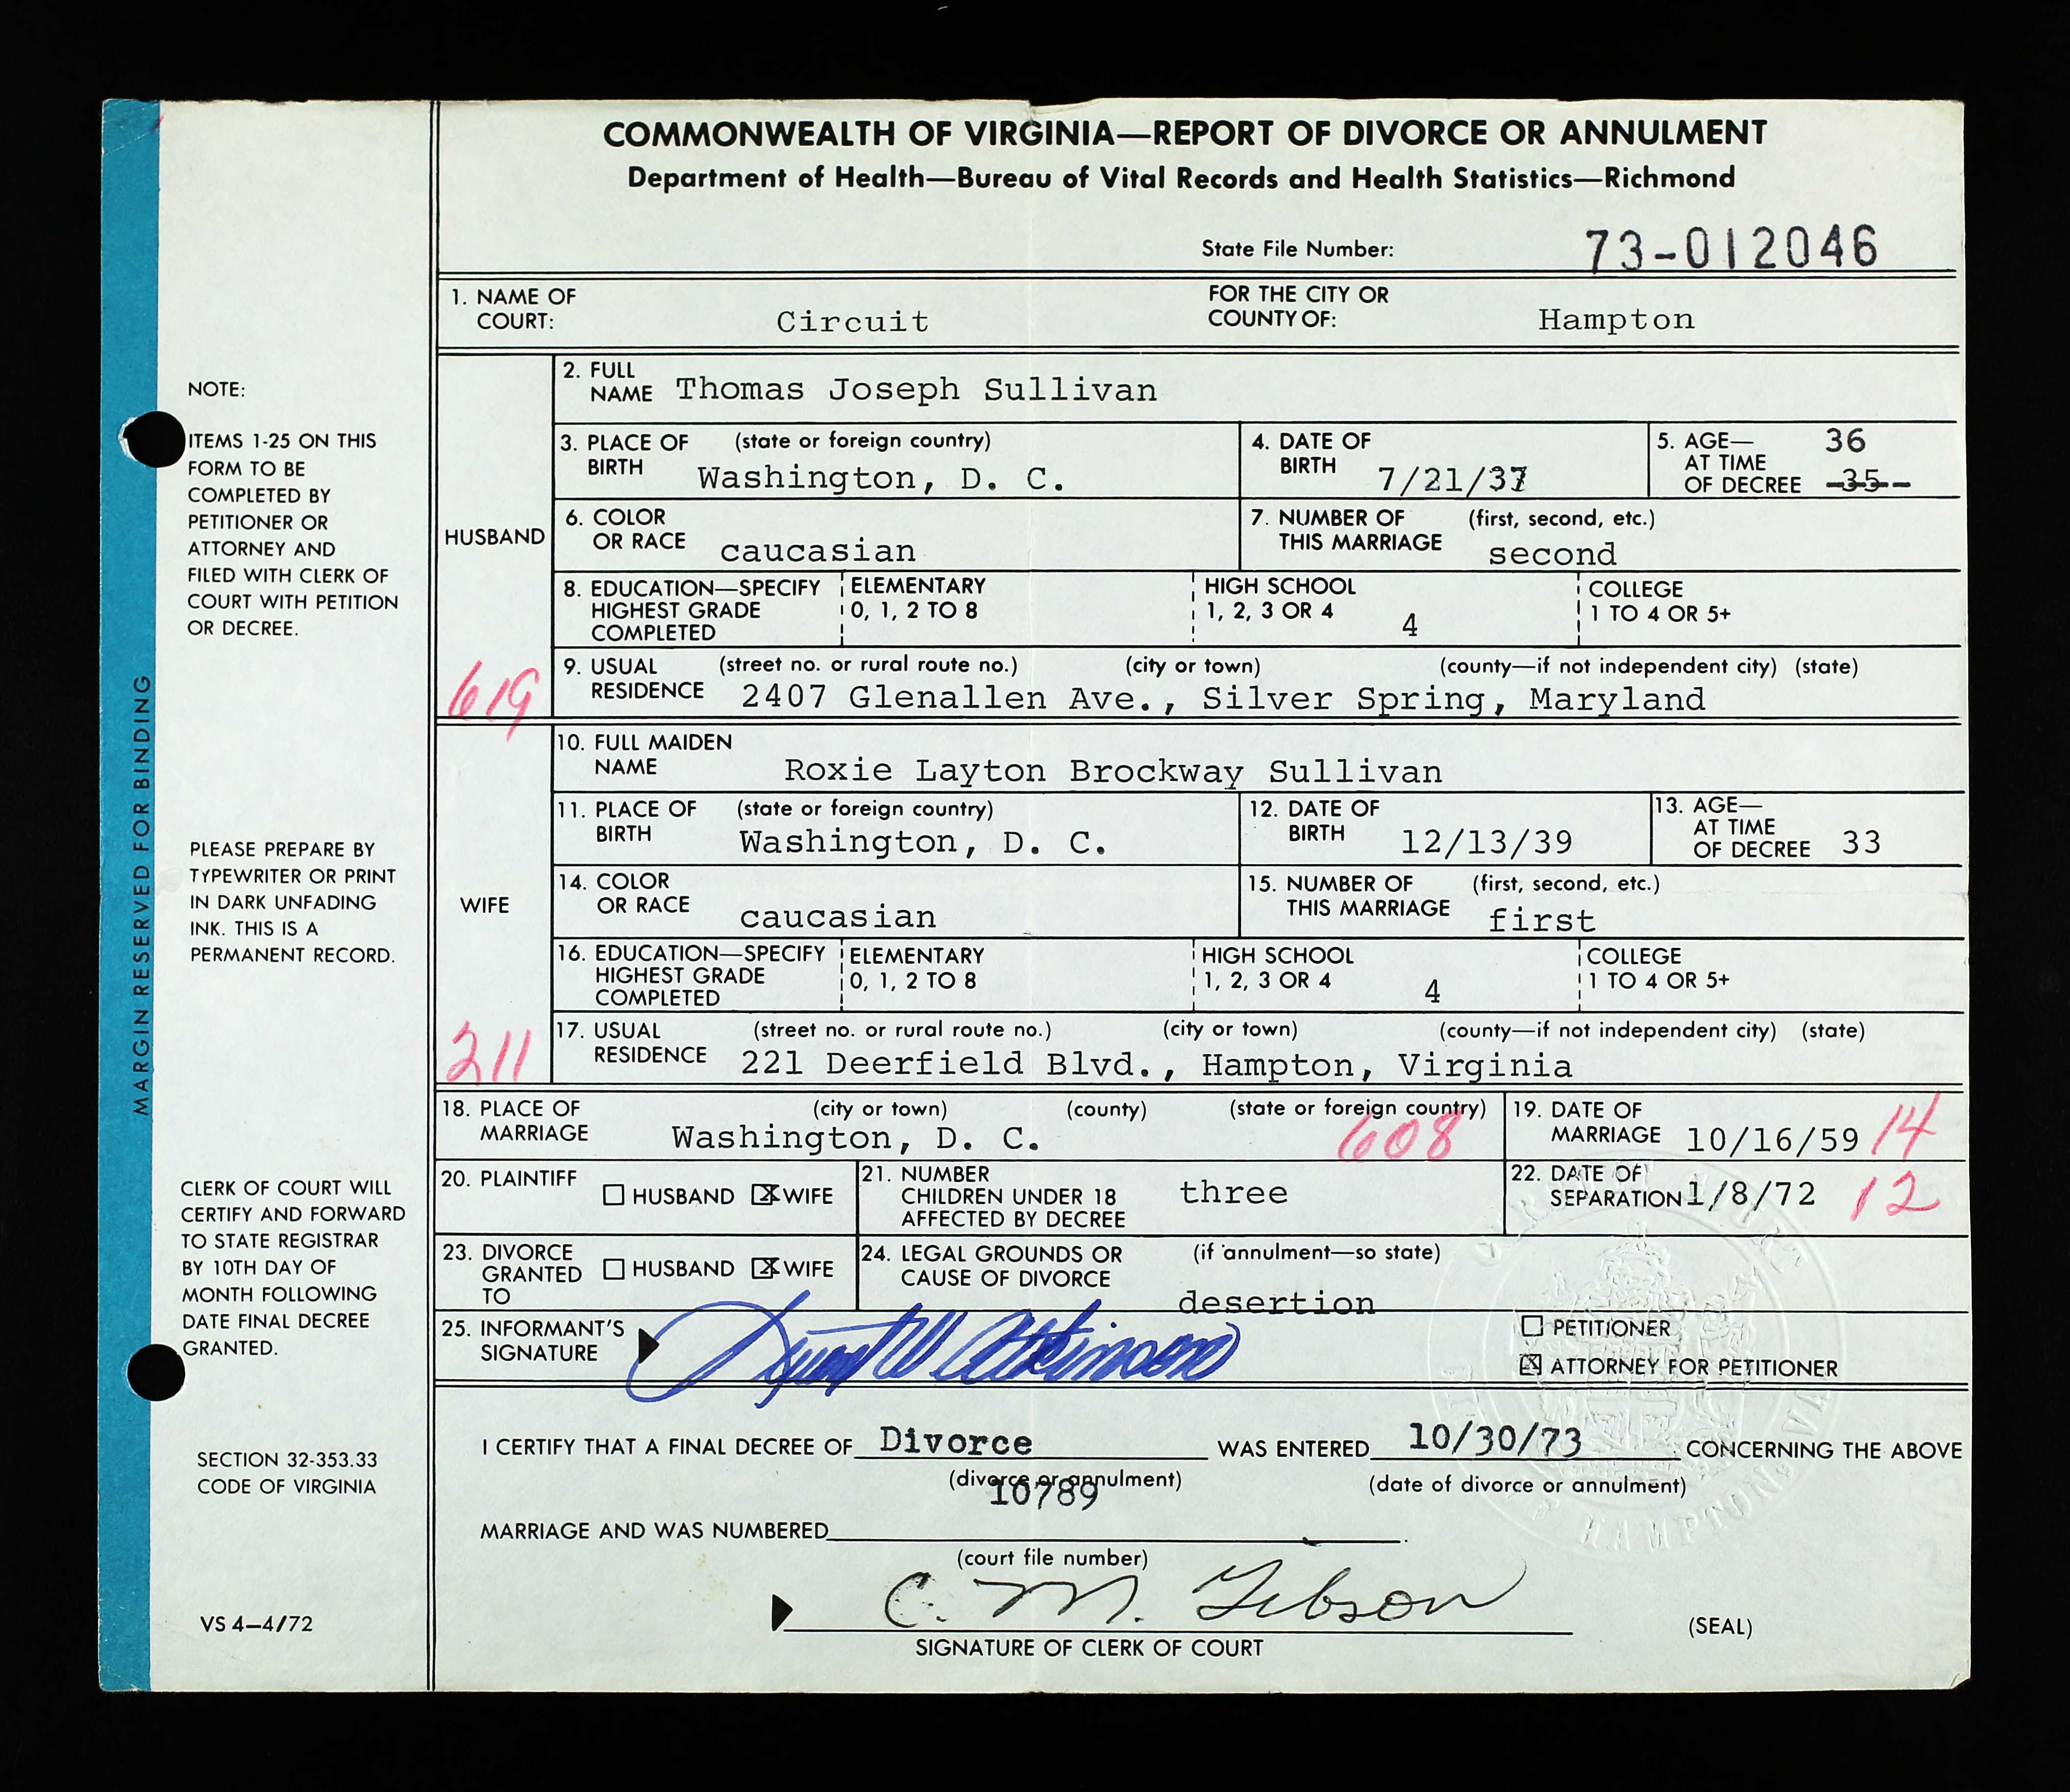 COMMONWEALTH OF VIRGINIA—REPORT OF DIVORCE OR ANNULMENT
Department of Health—Bureau of Vital Records and Health Statistics—Richmond
State File Number: 73-012046
1. NAME OF COURT: Circuit FOR THE CITY OR COUNTY OF: Hampton
HUSBAND
619
2. FULL NAME Thomas Joseph Sullivan
3. PLACE OF BIRTH (state or foreign country) Washington, D. C.
4. DATE OF BIRTH 7/21/37
5. AGE— AT TIME OF DECREE 36 35
6. COLOR OR RACE caucasian
7. NUMBER OF THIS MARRIAGE (first, second, etc.) second
8. EDUCATION—SPECIFY HIGHEST GRADE COMPLETED
ELEMENTARY 0, 1, 2 TO 8
HIGH SCHOOL 1, 2, 3 OR 4 4
COLLEGE 1 TO 4 OR 5+
9. USUAL RESIDENCE (street no. or rural route no.) (city or town) (county—if not independent city) (state)
2407 Glenallen Ave., Silver Spring, Maryland
WIFE
211
10. FULL MAIDEN NAME Roxie Layton Brockway Sullivan
11. PLACE OF BIRTH (state or foreign country) Washington, D. C.
12. DATE OF BIRTH 12/13/39
13. AGE— AT TIME OF DECREE 33
14. COLOR OR RACE caucasian
15. NUMBER OF THIS MARRIAGE (first, second, etc.) first
16. EDUCATION—SPECIFY HIGHEST GRADE COMPLETED
ELEMENTARY 0, 1, 2 TO 8
HIGH SCHOOL 1, 2, 3 OR 4 4
COLLEGE 1 TO 4 OR 5+
17. USUAL RESIDENCE (street no. or rural route no.) (city or town) (county—if not independent city) (state)
221 Deerfield Blvd., Hampton, Virginia
18. PLACE OF MARRIAGE (city or town) (county) (state or foreign country)
Washington, D. C. 608
19. DATE OF MARRIAGE 10/16/59 14
20. PLAINTIFF HUSBAND X WIFE
21. NUMBER CHILDREN UNDER 18 AFFECTED BY DECREE three
22. DATE OF SEPARATION 1/8/72 12
23. DIVORCE GRANTED TO HUSBAND X WIFE
24. LEGAL GROUNDS OR CAUSE OF DIVORCE (if annulment—so state)
desertion
25. INFORMANT'S SIGNATURE W Atkinson
PETITIONER
X ATTORNEY FOR PETITIONER
I CERTIFY THAT A FINAL DECREE OF Divorce WAS ENTERED 10/30/73 CONCERNING THE ABOVE
(divorce or annulment) (date of divorce or annulment)
10789
MARRIAGE AND WAS NUMBERED
(court file number)
C. M. Gibson
SIGNATURE OF CLERK OF COURT
(SEAL)
HAMPTON, VA
MARGIN RESERVED FOR BINDING
NOTE:
ITEMS 1-25 ON THIS
FORM TO BE
COMPLETED BY
PETITIONER OR
ATTORNEY AND
FILED WITH CLERK OF
COURT WITH PETITION
OR DECREE.
PLEASE PREPARE BY
TYPEWRITER OR PRINT
IN DARK UNFADING
INK. THIS IS A
PERMANENT RECORD.
CLERK OF COURT WILL
CERTIFY AND FORWARD
TO STATE REGISTRAR
BY 10TH DAY OF
MONTH FOLLOWING
DATE FINAL DECREE
GRANTED.
SECTION 32-353.33
CODE OF VIRGINIA
VS 4—4/72